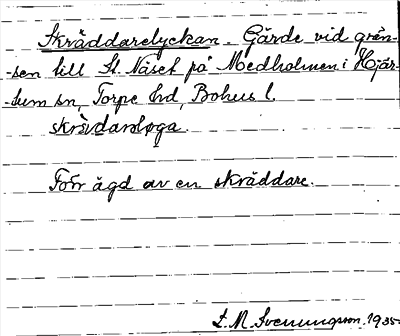 Skräddarelyckan. Gärde vid grän-
-sen till St. Näset på Medholmen i Hjär-
-tum sn, Torpe hd, Bohus l.
skrèdarəløga.
Förr ägd av en skräddare.
L. M. Svenungsson, 1935